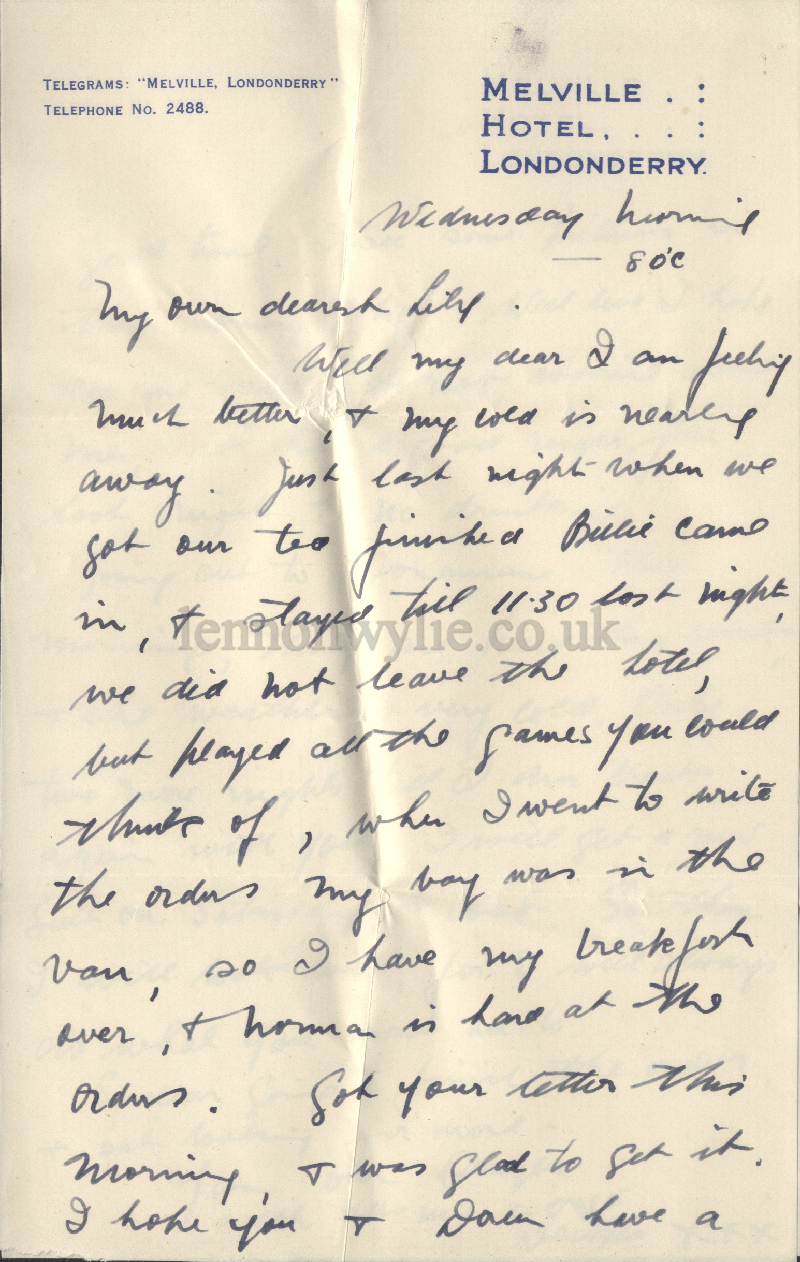 TELEGRAMS: "MELVILLE, LONDONDERRY"
TELEPHONE No. 2488.
MELVILLE . :
HOTEL, . . . :
LONDONDERRY.
Wednesday Morning
— 8 o'c
My own dearest Lily .
Well my dear I am feeling
much better, & my cold is nearly
away. Just last night when we
got our tea finished Billie came
in, & stayed till 11.30 last night,
we did not leave the hotel,
but played all the games you could
think of, when I went to write
the orders my bag was in the
van, so I have my breakfast
over, & Norman is hard at the
orders. Got your letter this
morning, & was glad to get it.
I hope you & have a
lennonwylie.co.uk